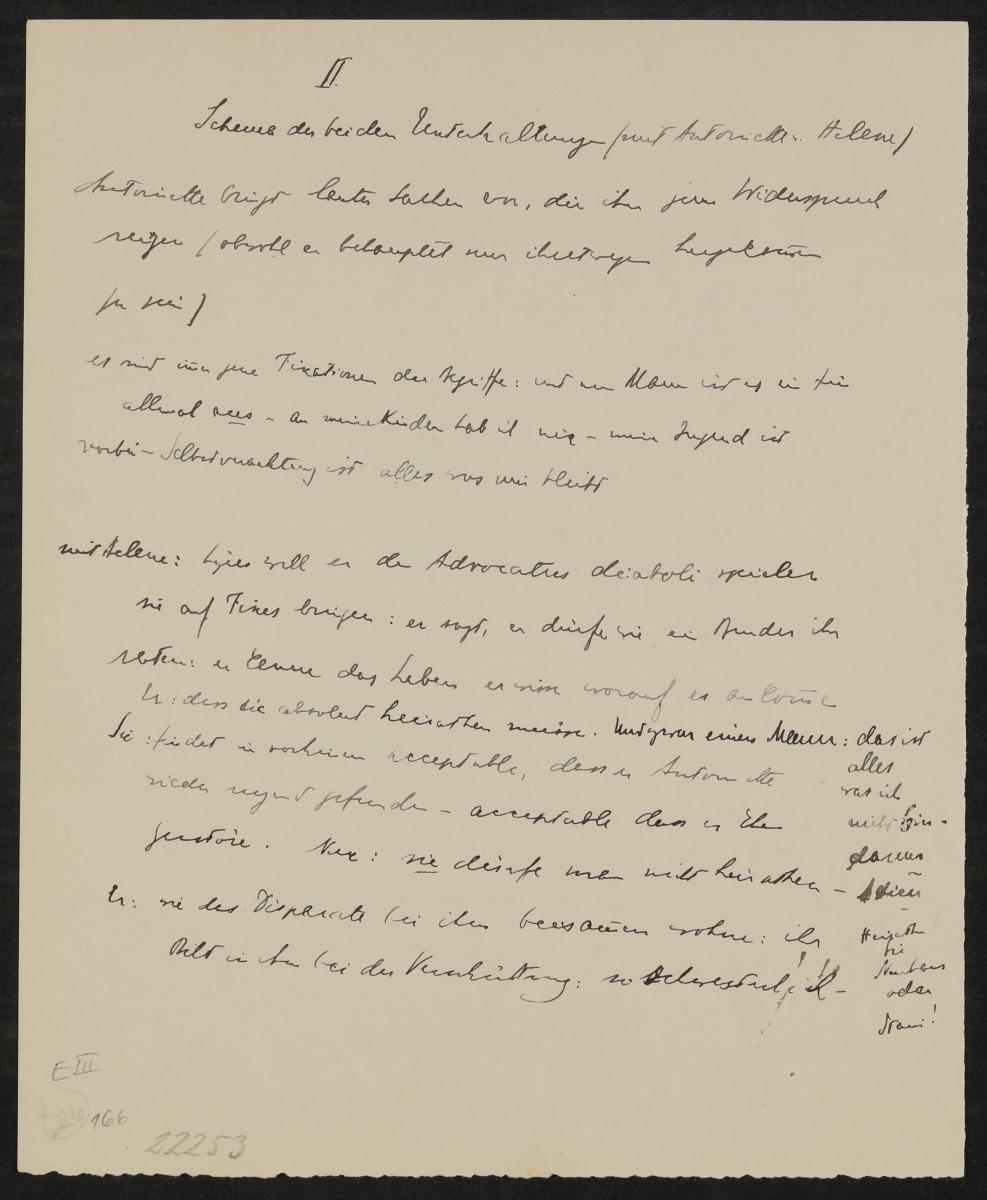 II.
Schema der beiden Unterhaltungen (mit Antoinette u. Helene)
Antoinette bringt lauter Sachen vor, die ihn zum Widerspruch
reizen (obwohl er behauptet nur ihretwegen hergekom̄en
zu sein)
es sind im̄er jene Fixationen der Begriffe: und ein Mann ist es ein für
allemal aus – an meine Kinder hab ich nix – meine Jugend ist
vorbei – Selbstverachtung ist alles was mir bleibt
mit Helene: hier will er den Advocatus diaboli spielen
sie auf Fixes bringen: er sagt, er dürfe wie ein Bruder ihr
rathen: er kenne das Leben er wisse worauf es ankom̄e
Er: dass sie absolut heirathen müsse. Und zwar einen Mann: das ist
alles
was ich
nicht bin –
darum
Adieu
Sie: findet in vorhinein acceptable, dass er Antoinette
wieder gefunden – acceptable dass er Ehen
zerstöre. Nex: sie dürfe man nicht heirathen –
Er: wie das Disparate bei ihm beisam̄en wohne: ihr
Bild in ihm bei der Verschüttung: so schwesterlich! –
Heirathen
Sie
Neuhoff
oder
E III
166
22253